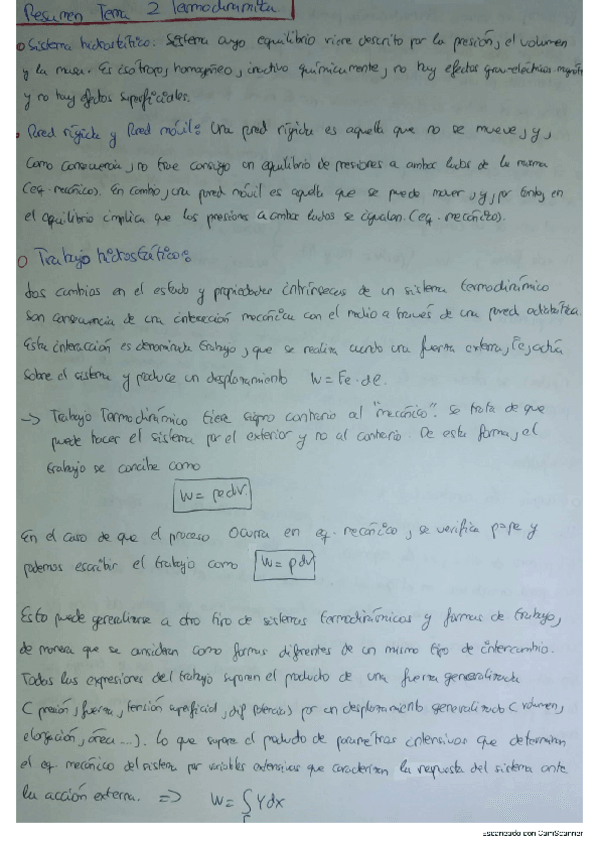 Resumen Tema 2 Termodinámica
Sistema hidrostático: Sistema cuyo equilibrio viene descrito por la presión, el volumen
y la masa. Es isótropo, homogéneo, inactivo químicamente, no hay efectos grav-eléctricos magnét
y no hay efectos superficiales.
Pared rígida y Pared móvil: Una pared rígida es aquella que no se mueve, y,
como consecuencia, no trae consigo un equilibrio de presiones a ambos lados de la misma
(eq. mecánico). En cambio, una pared móvil es aquella que se puede mover, y, por tanto, en
el equilibrio implica que las presiones a ambos lados se igualan. (eq. mecánico).
Trabajo hidrostático:
Los cambios en el estado y propiedades intrínsecas de un sistema termodinámico
son consecuencia de una interacción mecánica con el medio a través de una pared adiabática.
Esta interacción es denominada trabajo, que se realiza cuando una fuerza externa, Fe, actúa
sobre el sistema y produce un desplazamiento W = Fe · dl.
→ Trabajo Termodinámico tiene signo contrario al "mecánico". Se trata de que
puede hacer el sistema por el exterior y no al contrario. De esta forma, el
trabajo se concibe como
W = pedv
En el caso de que el proceso ocurra en eq. mecánico, se verifica p=pe y
podemos escribir el trabajo como W = pdv
Esto puede generalizarse a otro tipo de sistemas termodinámicos y formas de trabajo,
de manera que se consideran como formas diferentes de un mismo tipo de intercambio.
Todas las expresiones del trabajo suponen el producto de una fuerza generalizada
(presión, fuerza, tensión superficial, dif potencial) por un desplazamiento generalizado (volumen,
elongación, área ...). Lo que supone el producto de parámetros intensivos que determinan
el eq. mecánico del sistema por variables extensivas que caracterizan la respuesta del sistema ante
la acción externa. => W = ∫ Y dx
Γ
Escaneado con CamScanner